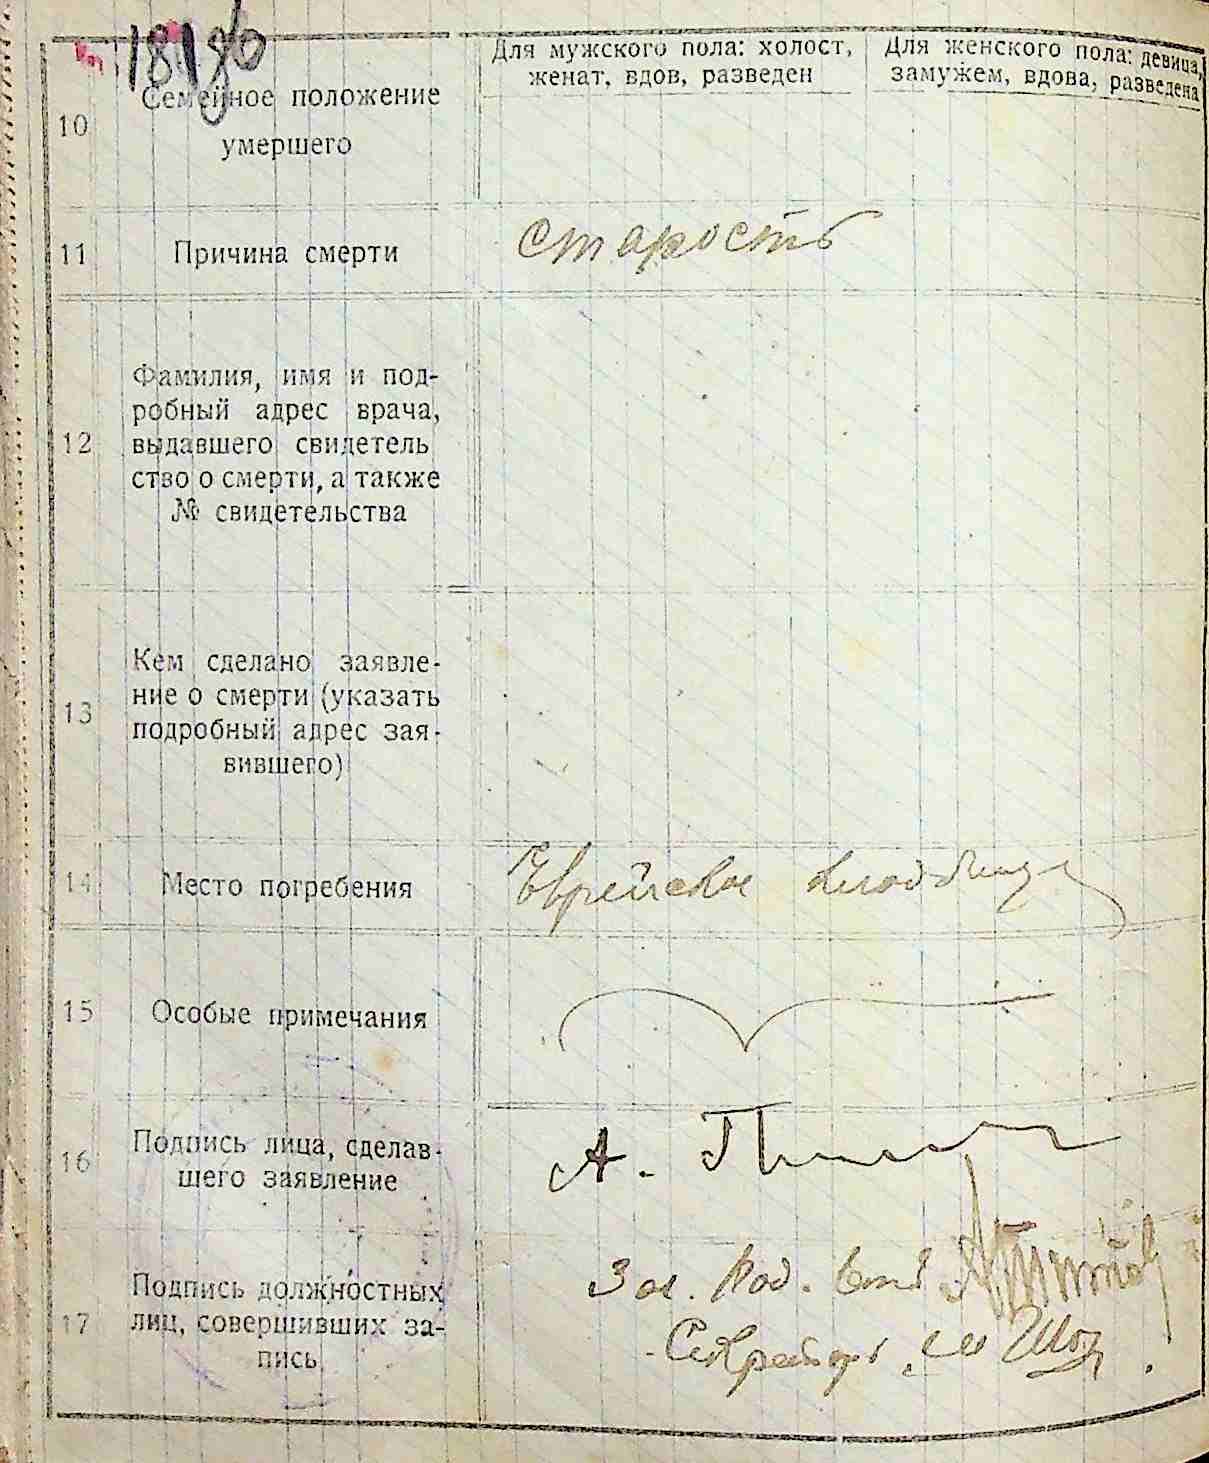 Для мужского пола: холост,
женат, вдов, разведен
Для женского пола: девица,
замужем, вдова, разведена
10
Семейное положение
умершего
11
Причина смерти
старость
12
Фамилия, имя и под-
робный адрес врача,
выдавшего свидетель
ство о смерти, а также
№ свидетельства
13
Кем сделано заявле-
ние о смерти (указать
подробный адрес зая-
вившего)
14
Место погребения
Еврейское кладбище
15
Особые примечания
16
Подпись лица, сделав-
шего заявление
А.
17
Подпись должностных
лиц, совершивших за-
пись
Секретарь